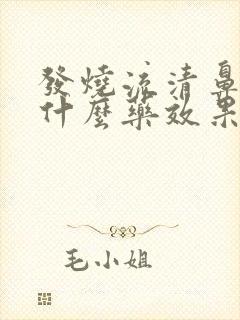 發燒流清鼻
什麼藥效果
毛小姐